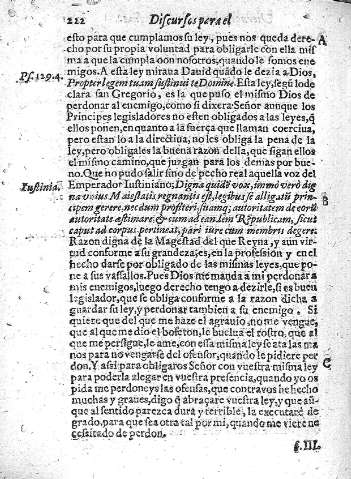 222 Discursos para el
esto para que cumplamos su ley, pues nos queda dere-
cho por su propia voluntad para obligarle con ella mis
ma a que la cumpla con nosotros, quando le somos ene
migos. A esta ley miraua Dauid quãdo le dezia a Dios,
Propter legem tuam sustinui te Domine. Esta ley, segũ lo de
clara san Gregorio, es la que puso el mismo Dios de
perdonar al enemigo, como si dixera: Señor aunque los
Principes legisladores no esten obligados a las leyes, q̃
ellos ponen, en quanto a la fuerça que llaman coerciua,
pero estan lo a la directiua, no les obliga la pena de la
ley, pero obligales la buena razon della, que sigan ellos
el mismo camino, que juzgan para los demas por bue-
no. Que no pudo salir sino de pecho real aquella voz del
Emperador Iustiniano; Digna quidẽ vox, immò verò dig
na voius Maiestatis regnantis est, legibus se alligatũ prin-
cipem gerere, necdum profiteri,
autoritate estimare: & cum ad eandem Rempublicam, sicut
caput ad corpus pertineat, pari iure cum membris degere:
Razon digna de la Magestad del que Reyna, y aun vir-
tud conforme a su grandeza, es, en la profession y en el
hecho darse por obligado de las mismas leyes, que po-
ne a sus vassallos. Pues Dios me manda a mi perdonar a
mis enemigos, luego derecho tengo a dezirle, si es buen
legislador, que se obliga conforme a la razon dicha a
guardar su ley, y perdonar tambien a su enemigo. Si
quiere que del que me haze el agrauio, no me vengue,
que al que me dio el bofeton, le buelua el rostro, que al
que me persigue, le ame, con essa misma ley se ata las ma
nos para no vengarse del ofensor, quando le pidiere per
don. Y assi para obligaros Señor con vuestra misma ley
para poderla alegar en vuestra presencia, quando yo os
pida me perdoneys las ofensas, que contra vos he hecho
muchas y graues, digo q̃ abraçare vuestra ley, y que aũ-
que al sentido parezca dura y terrible, la executaré de
grado, para que sea otra tal por mi, quando me viere ne
cessitado de perdon.
§. III.
Ps. 129. 4.
Iustinia.
A
B
C